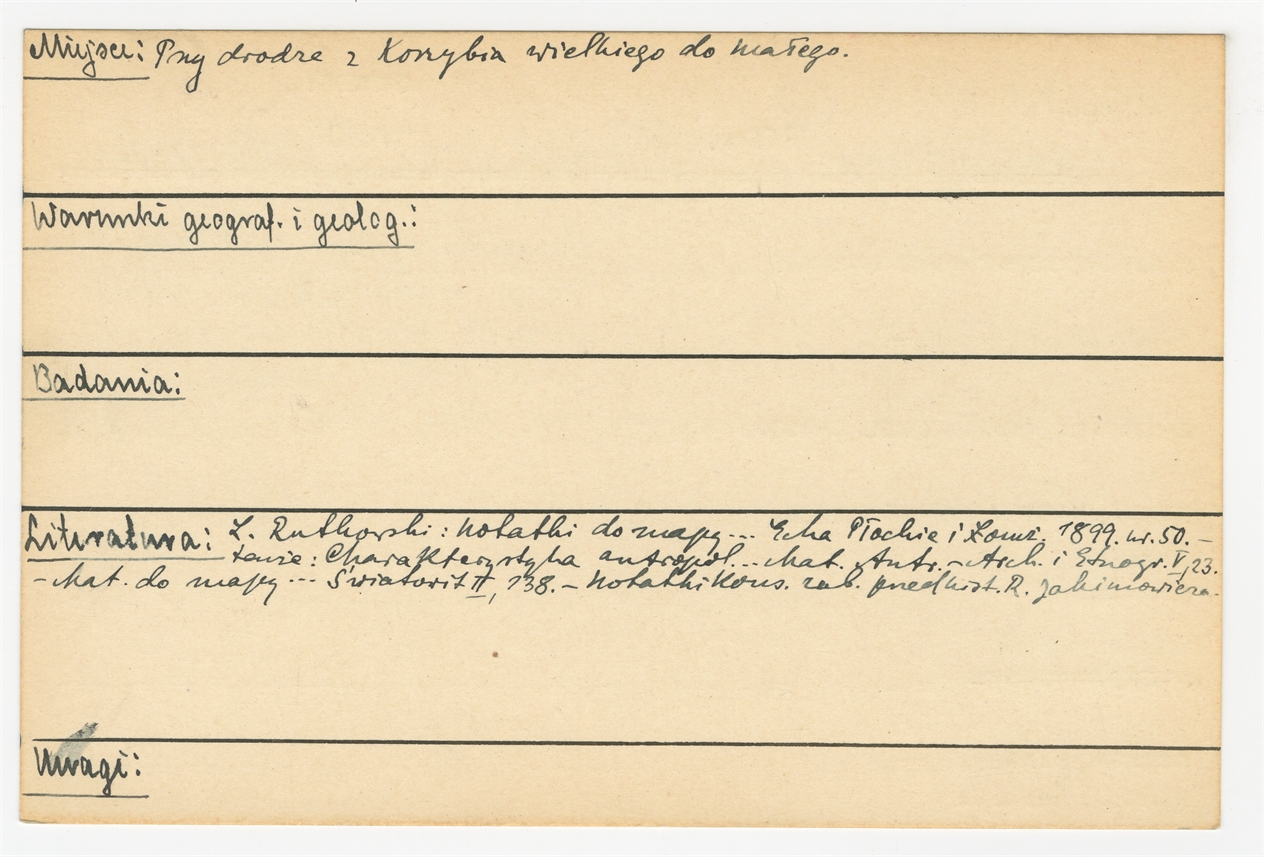 Miejsce: Przy drodze z Korzybia wielkiego do małego.
Warunki geograf. i geolog.:
Badania:
Literatura: L. Rutkowski: Notatki do mapy... Echa Płockie i Łomż. 1899. nr. 50. –
Tenże: Charakterystyka antropol... Mat. Antr. – Arch. i Etnogr. V, 23.
– Mat. do mapy ... Światowit II, 138. – Notatki Kons. zab. przedhist. R. Jakimowicza.
Uwagi: